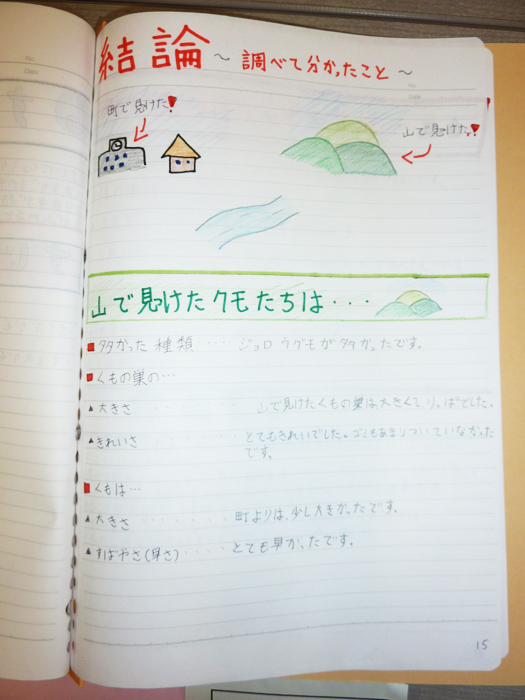 結論 ～ 調べて分かったこと ～
町で見つけた!
山で見つけた!
山で見つけたクモたちは・・・
多かった種類 ・・・・ ジョロウグモが多かったです。
くもの巣の…
大きさ ・・・・ 山で見つけたくもの巣は大きくて、りっぱでした。
きれいさ ・・・・ とてもきれいでした。ゴミもあまりついていなかった
です。
くもは…
大きさ ・・・・・・ 町よりは、少し大きかったです。
すばやさ(早さ) ・・・・ とても早かったです。
15